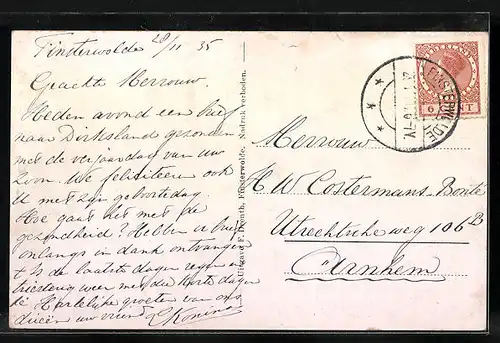 Finsterwolde 28/11 35
Geachte Mevrouw.
Heden avond een brief
naar Dirksland gezonden
met de verjaardag van uw
Zoon. We feliciteeren ook
U met zijn geboortedag.
Hoe gaat het met de
gezondheid? Hebben uw brief
onlangs in dank ontvangen
't Is de laatste dagen regen en
weer met die korte dagen
Hartelijke groeten van ons
uw vriend
Uitgave F. Drenth, Finsterwolde. Nadruk verboden.
FINSTERWOLDE
6 CENT
Mevrouw
H W Costermans-Bonté
Utrechtscheweg 106 B
Arnhem